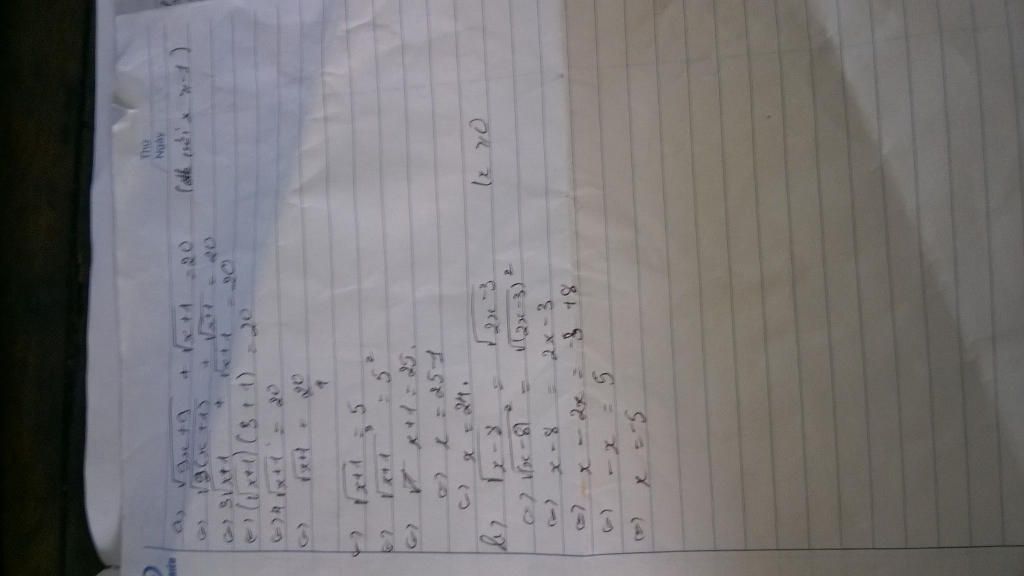 Thứ
Ngày
a) √9x+9 + √x+1 = 20 (x ≥ -1)
<=> √9(x+1) + √x+1 = 20
<=> 3√x+1 + √x+1 = 20
<=> (√x+1)(3+1) = 20
<=> 4√x+1 = 20
<=> √x+1 = 20/4
<=> √x+1 = 5
<=> √x+1² = 5²
<=> x+1 = 25.
<=> x = 25-1
<=> x = 24.
b) √x-8 = √2x-3 (x ≥ 0
<=> √(x-8)² = √(2x-3)²
<=> x-8 = 2x-3
<=> x - 2x = -3 +8
<=> -x = 5
<=> x = -5